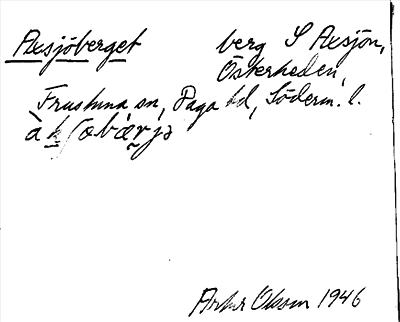 Axsjöberget berg S Axsjön,
Österheden,
Frustuna sn, Daga hd, Söderm. l.
Artur Olsson 1946